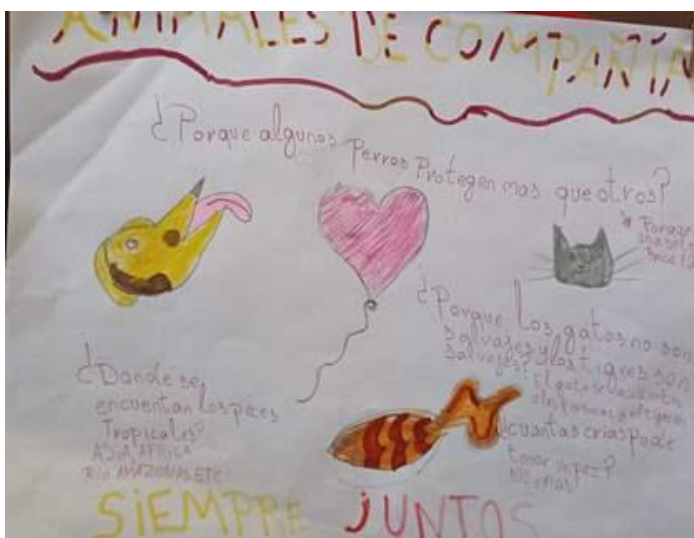 ANIMALES DE COMPAÑÍA
¿Porque algunos Perros Protegen mas que otros?
Porque
¿Porque los gatos no son
salvajes y los tigres son
salvajes?
El gato se
¿Donde se
encuentan los peces
Tropicales?
ASIA AFRICA
Rio AMAZONAS ETC
¿cuantas crias puede
tener un pez?
SIEMPRE JUNTOS